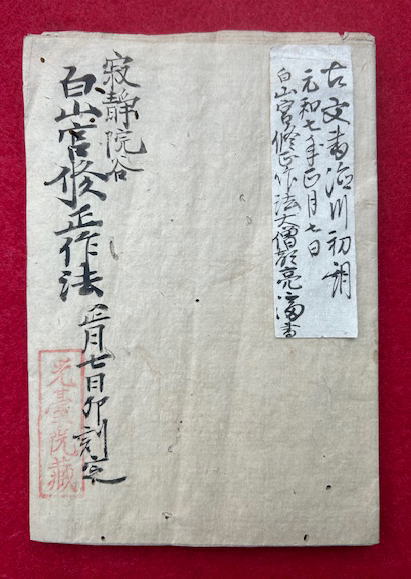 古文書 徳川初期
元和七年正月七日
白山宮修正作法大僧都亮済書
寂静院谷
白山宮修正作法
正月七日卯刻
光臺院藏